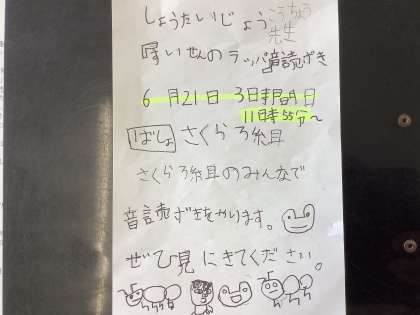 しょうたいじょう こうちょう先生
すいせんのラッパ音読げき
6月21日 3日時間目
11時55分〜
ばしょ さくら3組
さくら3組のみんなで
音読げきをやります。
ぜひ見にきてください。